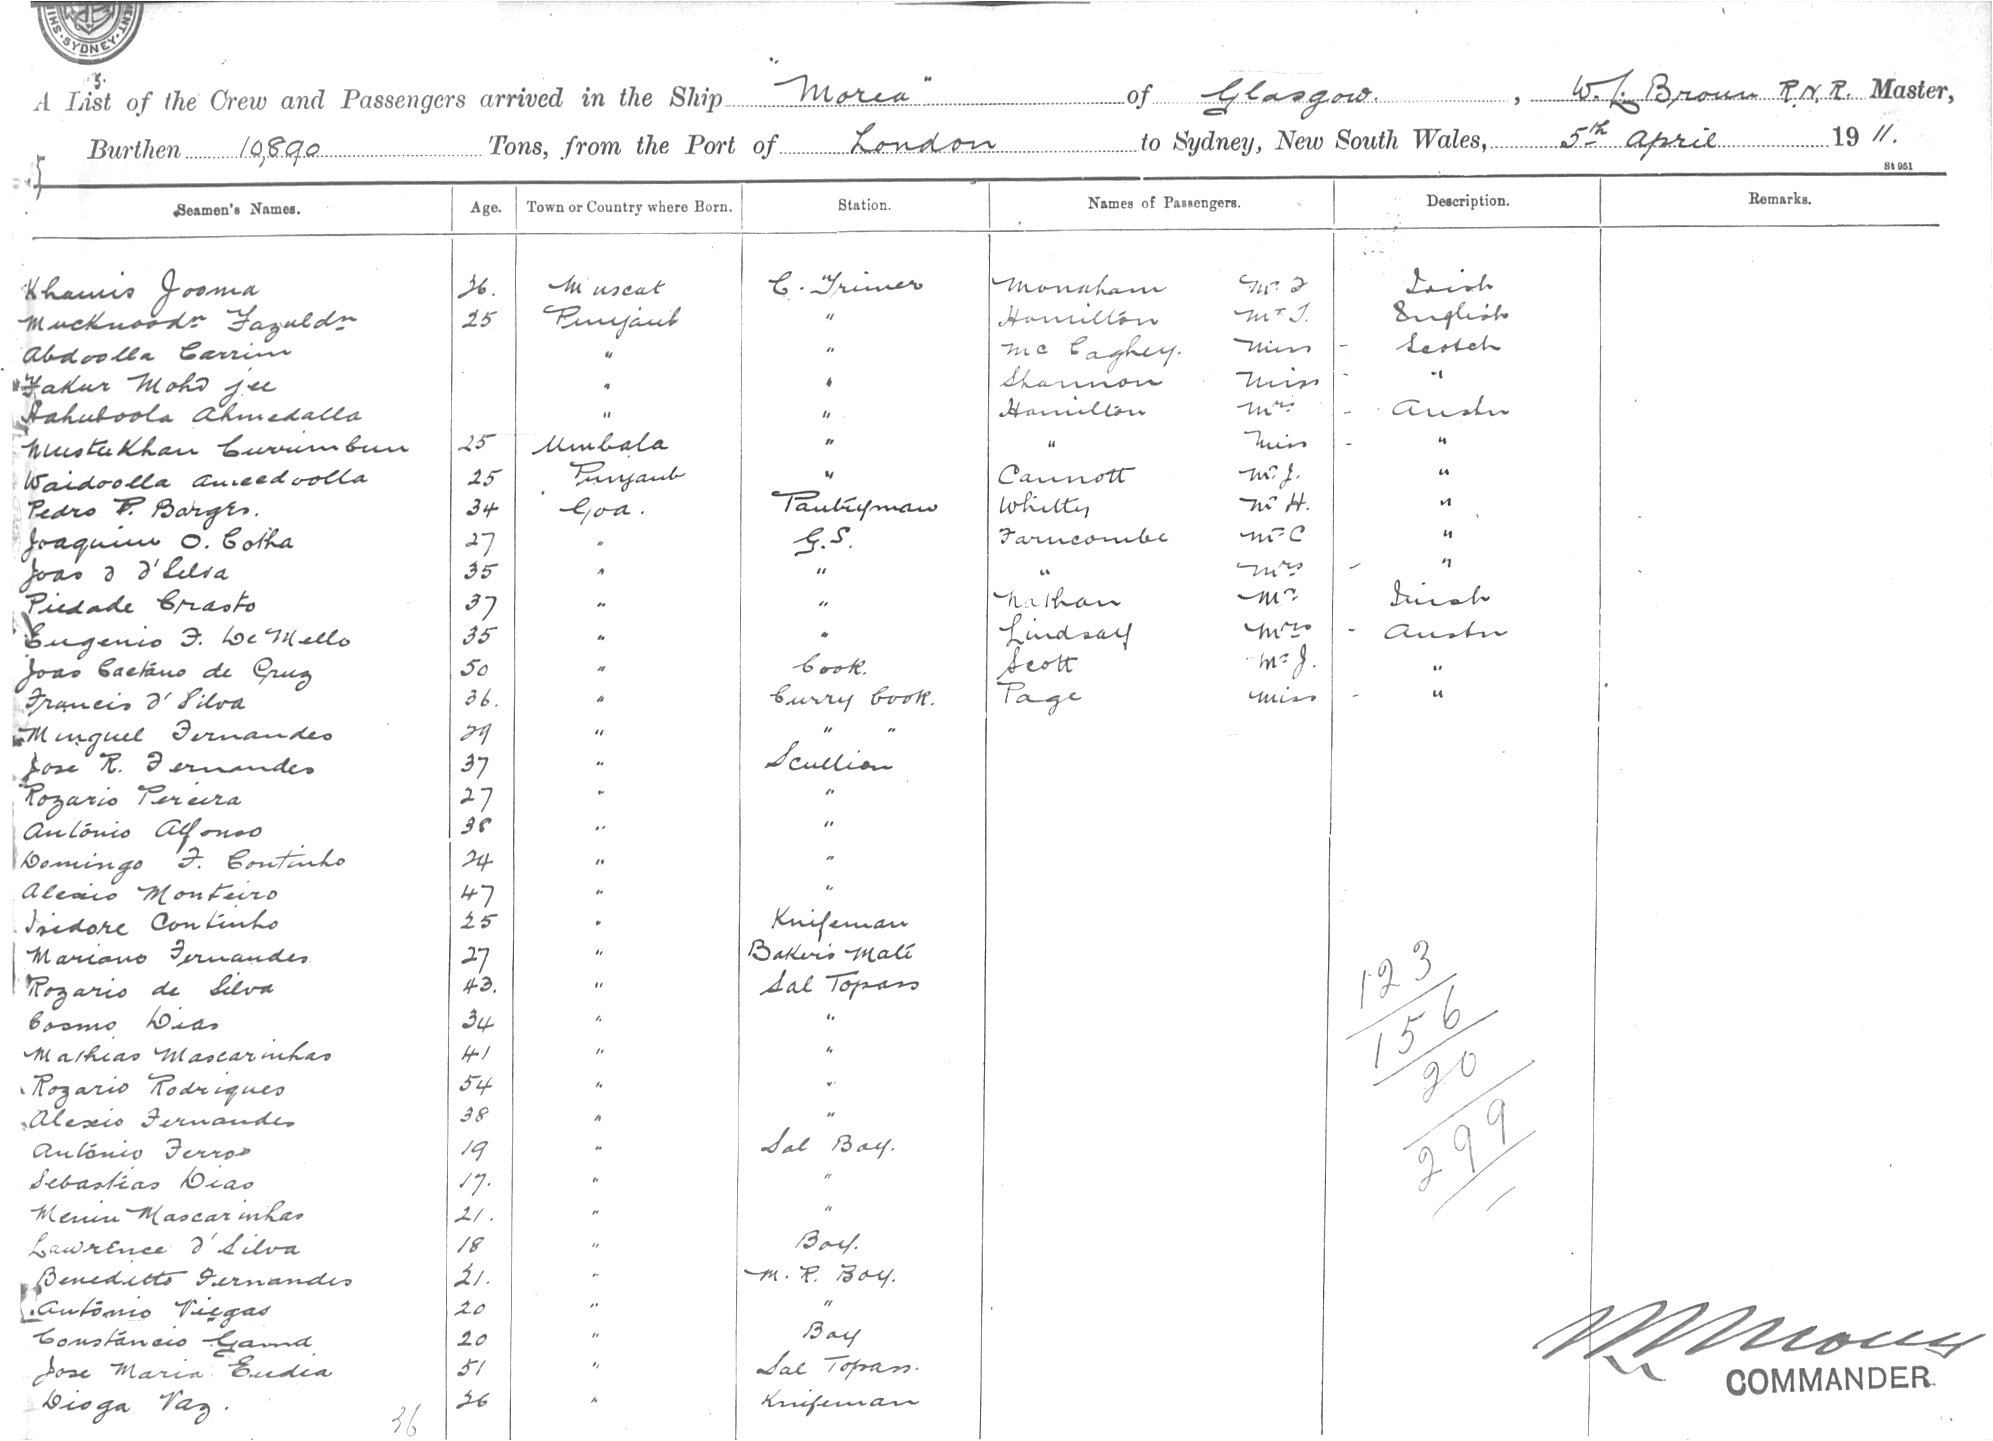 SYDNEY
A List of the Crew and Passengers arrived in the Ship "Morea" of Glasgow. , W. L. Brown R.N.R. Master,
Burthen 10,890 Tons, from the Port of London to Sydney, New South Wales, 5th April 1911.
St 951
Seamen's Names. Age. Town or Country where Born. Station. Names of Passengers. Description. Remarks.
Khamis Jooma 36. Muscat C. Trimer Monaham Mr Irish
Fazuldn 25 Punjaub " Hamilton Mr T. English
Abdoolla Carrim " " Mc Caghey. Miss - Scotch
Fakur Mohd jee " " Shannon Miss - "
Ahmedalla " " Hamilton Mrs - Austn
MustuKhan Currimbun 25 Umbala " " Miss - "
Waidoolla Ameedoolla 25 Punjaub " Cannott Mr J. "
Pedro P. Borges. 34 Goa. Pantryman Whitty Mr H. "
Joaquim O. Cotha 27 " G.S. Farncombe Mr C "
Joao D d'Silva 35 " " " Mrs - "
Piedade Crasto 37 " " Nathan Mr Irish
Eugenio F. De Mello 35 " " Lindsay Mrs - Austn
Joao Caetano de Cruz 50 " Cook. Scott Mr J. "
Francis d'Silva 36. " Curry Cook. Page Miss - "
Minguel Fernandes 29 " " "
Jose R. Fernandes 37 " Scullion
Rozario Pereira 27 " "
António Alfonso 38 " "
Domingo F. Continho 24 " "
Alexio Monteiro 47 " "
Isidore Continho 25 " Knifeman
Mariano Fernandes 27 " Baker's Mate
Rozario de Silva 43. " Sal Topass
Cosmo Dias 34 " "
Mathias Mascarinhas 41 " "
Rozario Rodrigues 54 " "
Alexio Fernandes 38 " "
António Ferros 19 " Sal Boy.
Sebastias Dias 17. " "
Menin Mascarinhas 21. " "
Lawrence d'Silva 18 " Boy.
Beneditto Fernandes 21. " M. R. Boy.
António Viegas 20 " "
Constáncio Gama 20 " Boy
Jose Maria Eudia 51 " Sal Topass.
Dioga Vaz. 26 " Knifeman
36
123
156
20
299
COMMANDER